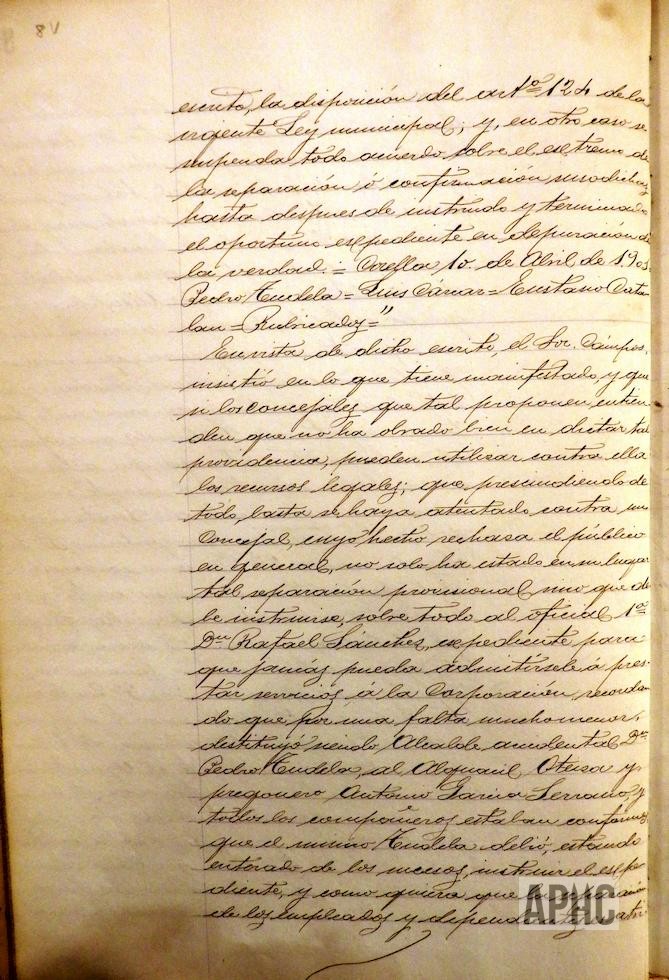 8V
escrito, la disposición del artº 124 de la
vigente Ley municipal; y, en otro caso se
suspenda todo acuerdo sobre el extremo de
la separación ó confirmación susodichas,
hasta despues de instruido y terminado
el oportuno espediente en depuración de
la verdad = Corella 10 de Abril de 190
Pedro Tudela = Luis Cárcar = Eustasio Cata-
lan = Rubricados = "
En vista de dicho escrito, el Sor. Cámpos,
insistió en lo que tiene manifestado, y que
si los concejales que tal proponen, entien-
den que no ha obrado bien en dictar tal
providencia, pueden utilizar contra ella
los recursos legales; que prescindiendo de
todo, basta se haya atentado contra un
Concejal, cuyo hecho rechasa el público
en general, no solo ha estado en su lugar
tal separación provisional sino que de-
be instruirse, sobre todo al oficial 1º
Dn Rafael Sánchez, espediente para
que jamás pueda admitírsele á pres-
tar servicios á la Corporación, recordan-
do que por una falta mucho menor,
destituyó siendo Alcalde accidental Dn
Pedro Tudela, al Alguacil Oteiza y
pregonero Antonio Garcia Serrano, y
todos los compañeros estaban conformes
que el mismo Tudela debió, estando
enterado de los sucesos, instruir el espe-
diente, y como quiera que la separación
de los empleados y dependientes
APHC